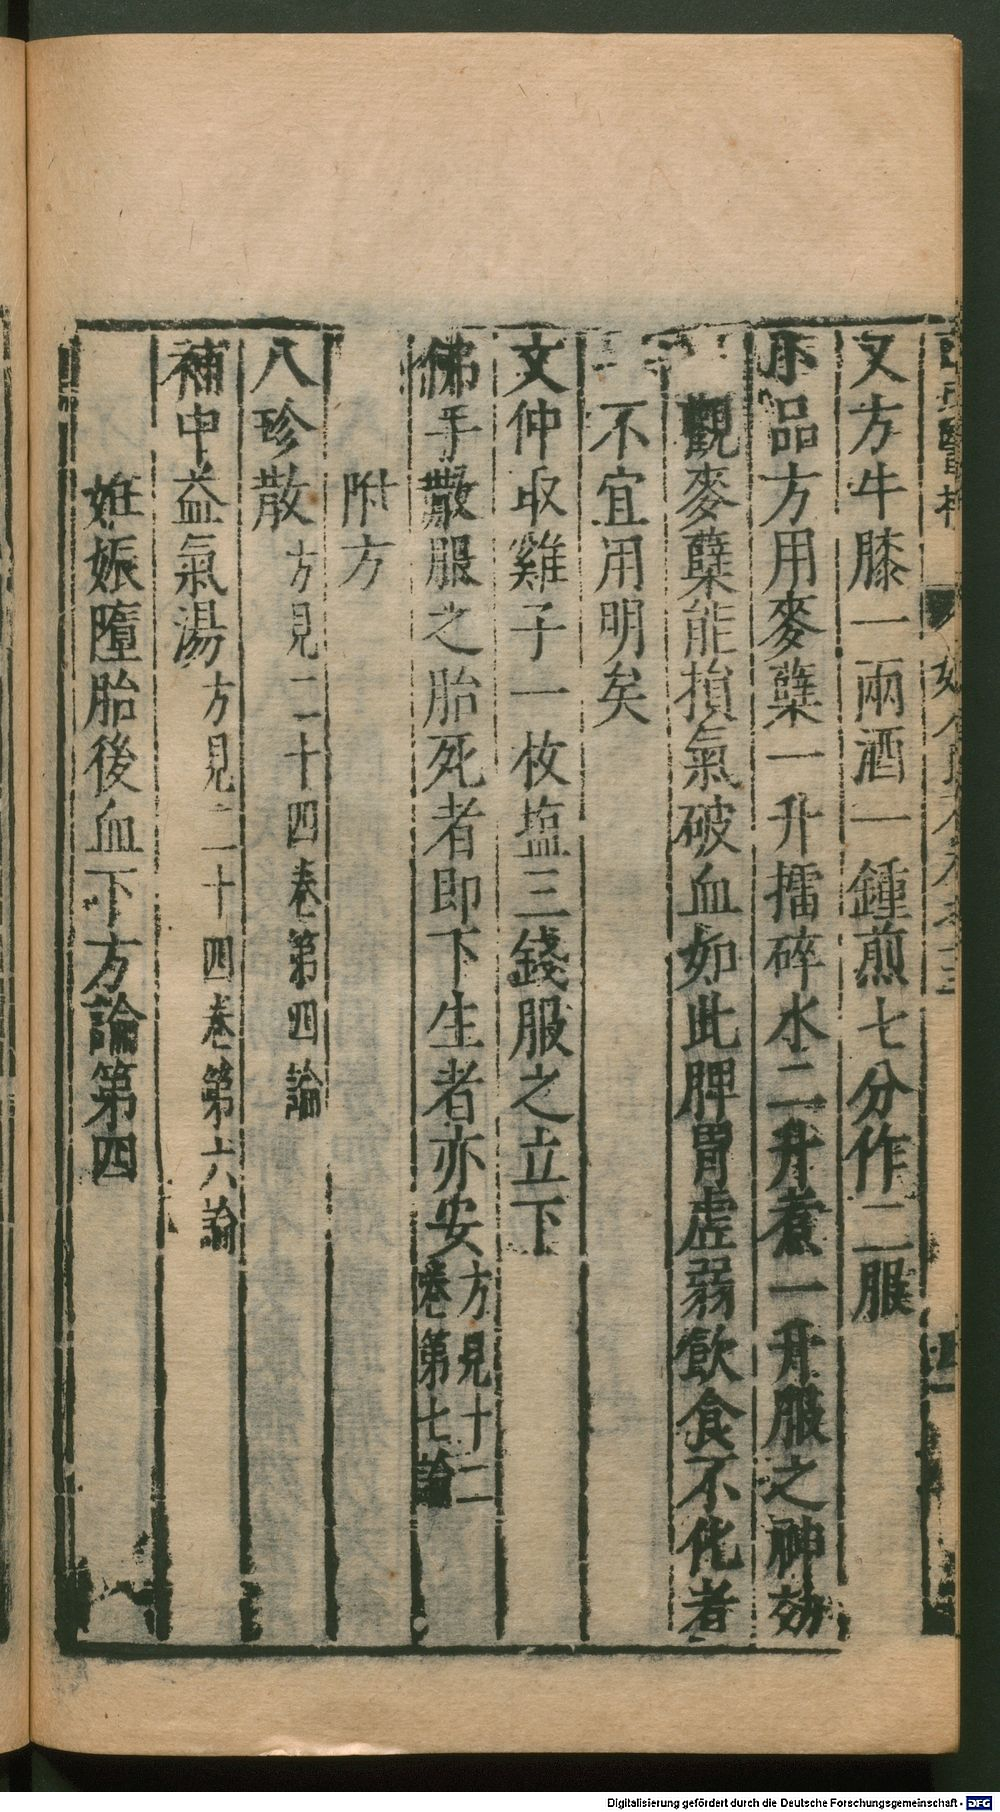 又方牛膝一兩酒一鍾煎七分作二服
小品方用麥糵一升擂碎水二升煮一升服之神効
觀麥糵能損氣破血如此脾胃虛弱飲食不化者
不宜用明矣
文仲取雞子一枚塩三錢服之立下
佛手散服之胎死者即下生者亦安方見十二卷第七論
附方
八珍散方見二十四卷第四論
補中益氣湯方見二十四卷第六論
妊娠墮胎後血下方論第四
Digitalisierung gefördert durch die Deutsche Forschungsgemeinschaft - DFG